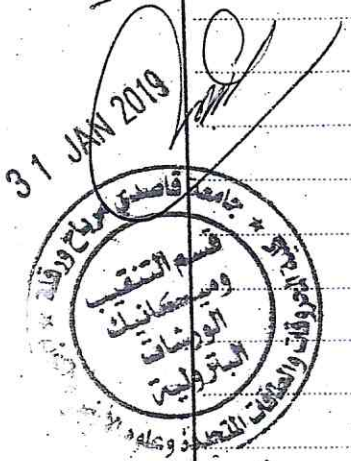 31 JAN 2019
جامعة قاصدي مرباح ورقلة
قسم التنقيب
وميكانيك
الورشات
البترولية
المحروقات والطاقات المتجددة وعلوم